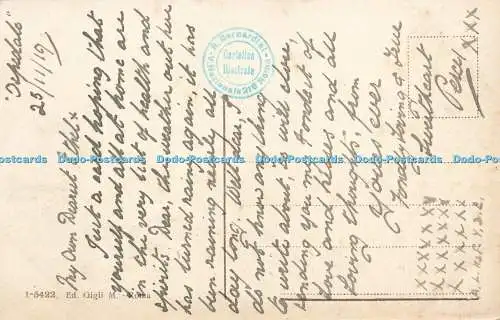 "Ospedale"
25/11/19
My Own Dearest Ethel x
Just a card hoping that
yourself and all at home are
in the very best of health and
spirits. Dear, the weather out here
has turned rainy again, it has
been raining nearly all
day long. Well dear, I
do not know anything
to write about, so will close,
sending you my fondest of
love and kisses and all
loving thoughts, from
Your ever
loving & true
Sweetheart
Peter
x x x
x x x x x x x
x x x x x x x
x x x x x x x
A. Bernardini
Cartolina
Illustrata
Roma
1-5422 Ed. Gigli M. - Roma
Dodo-Postcards Dodo-Postcards Dodo-Postcards Dodo-Postcards Dodo-Postcards
Dodo-Postcards Dodo-Postcards Dodo-Postcards Dodo-Postcards Dodo-Postcards